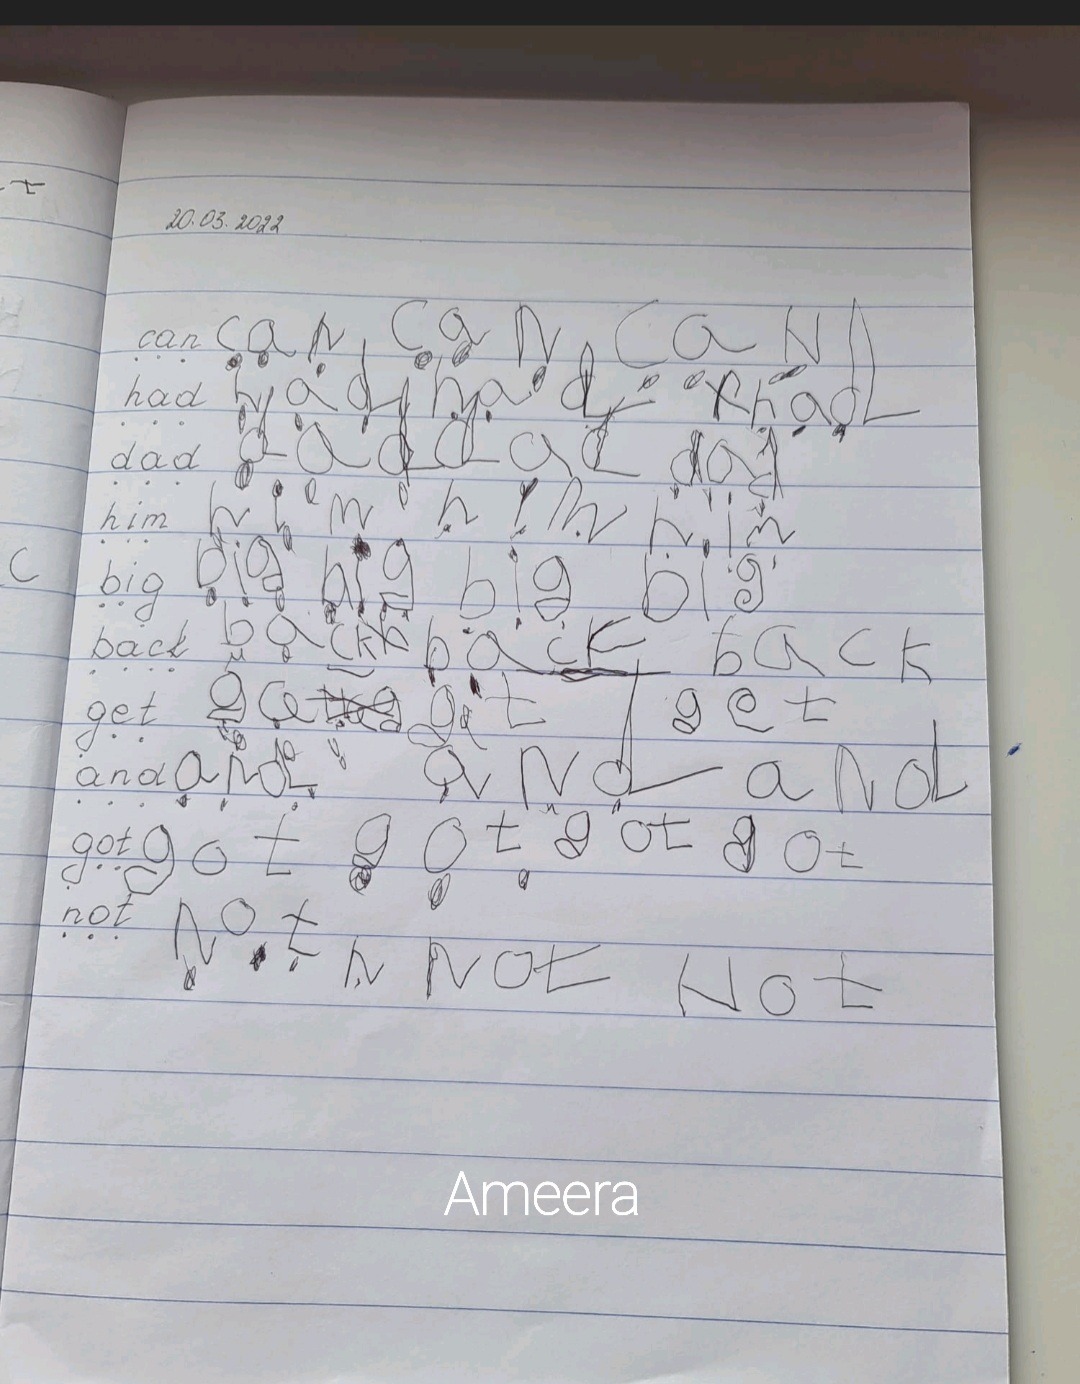 t
20.03.2022
can can can can
had had had xhad
dad dad dad dad
him him him him
c
big big big big big
back back back back
get ge get get
and and and and
got got got got got
not not n not
Not
Ameera